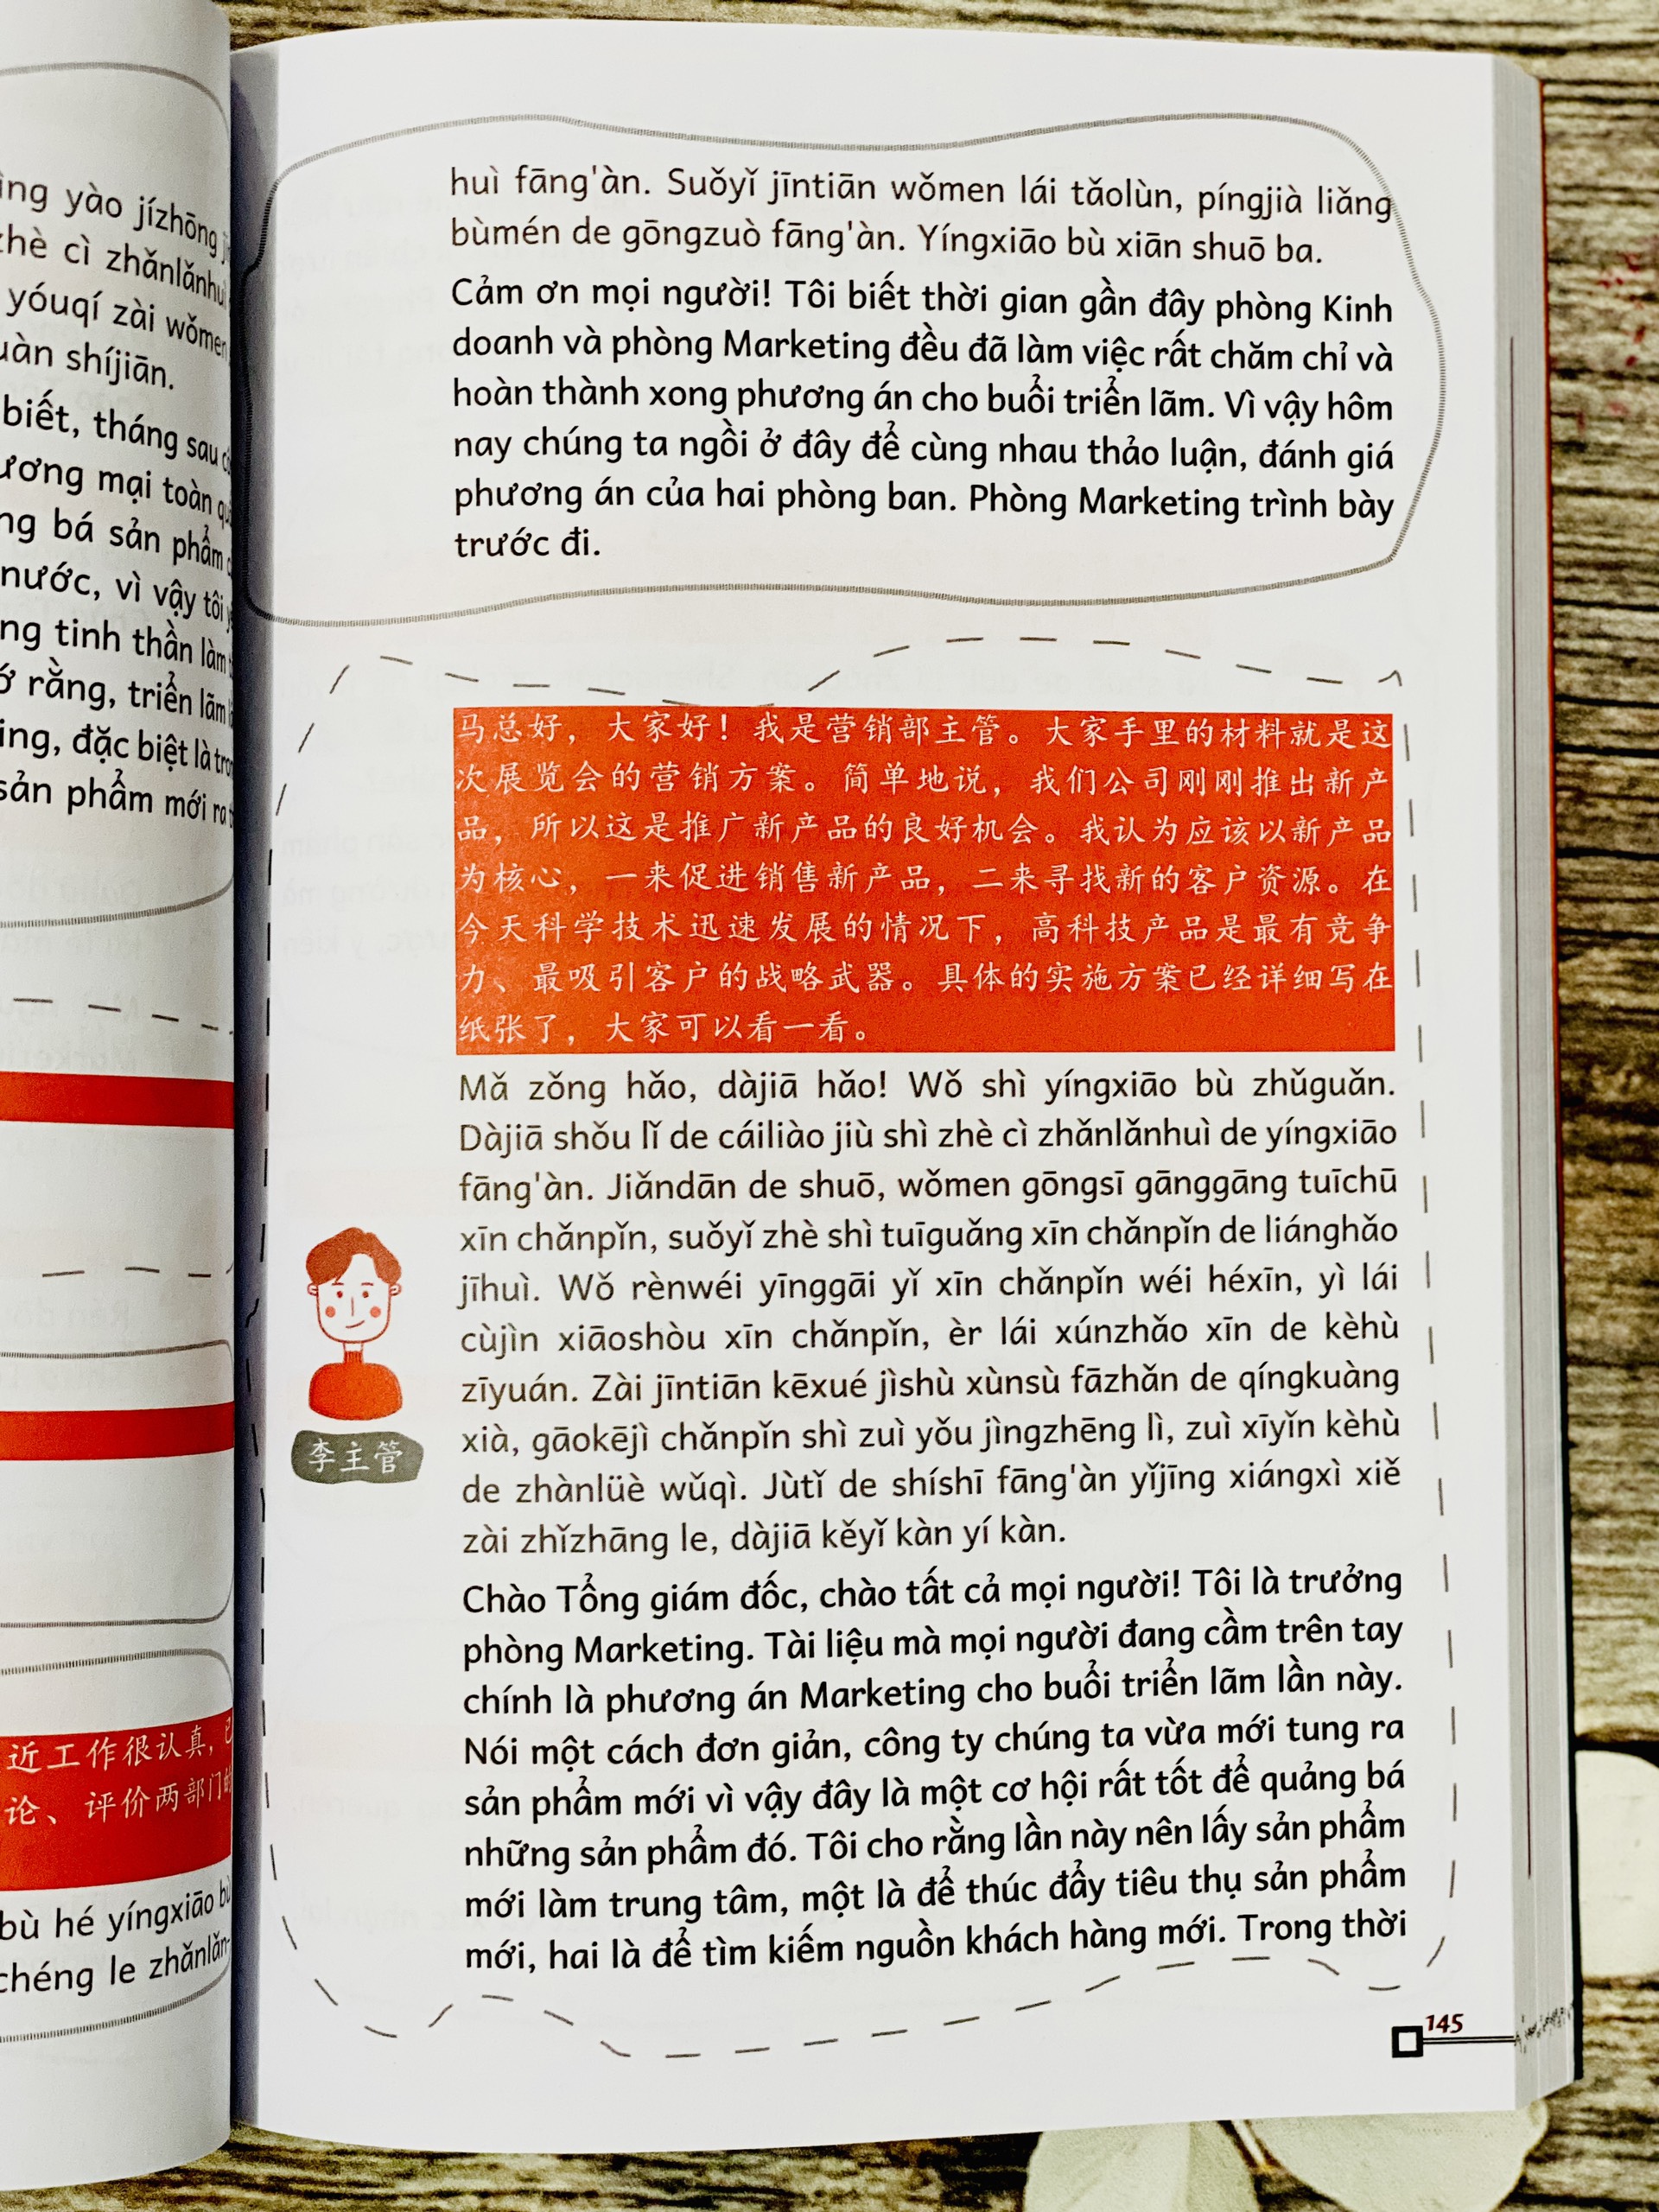 yào jízhōng
zhè cì zhǎnlǎnhuì
yóuqí zài wǒmen
shíjiān.
biết, tháng sau
mại toàn
bá sản phẩm
nước, vì vậy tôi
tinh thần làm
rằng, triển lãm
đặc biệt là
sản phẩm mới ra
近工作很认真，已
论、评价两部门的
bù hé yíngxiāo bù
chéng le zhǎnlǎn-
huì fāng'àn. Suǒyǐ jīntiān wǒmen lái tǎolùn, píngjià liǎng
bùmén de gōngzuò fāng'àn. Yíngxiāo bù xiān shuō ba.
Cảm ơn mọi người! Tôi biết thời gian gần đây phòng Kinh
doanh và phòng Marketing đều đã làm việc rất chăm chỉ và
hoàn thành xong phương án cho buổi triển lãm. Vì vậy hôm
nay chúng ta ngồi ở đây để cùng nhau thảo luận, đánh giá
phương án của hai phòng ban. Phòng Marketing trình bày
trước đi.
马总好，大家好！我是营销部主管。大家手里的材料就是这
次展览会的营销方案。简单地说，我们公司刚刚推出新产
品，所以这是推广新产品的良好机会。我认为应该以新产品
为核心，一来促进销售新产品，二来寻找新的客户资源。在
今天科学技术迅速发展的情况下，高科技产品是最有竞争
力、最吸引客户的战略武器。具体的实施方案已经详细写在
纸张了，大家可以看一看。
李主管
Mǎ zǒng hǎo, dàjiā hǎo! Wǒ shì yíngxiāo bù zhǔguǎn.
Dàjiā shǒu lǐ de cáiliào jiù shì zhè cì zhǎnlǎnhuì de yíngxiāo
fāng'àn. Jiǎndān de shuō, wǒmen gōngsī gānggāng tuīchū
xīn chǎnpǐn, suǒyǐ zhè shì tuīguǎng xīn chǎnpǐn de liánghǎo
jīhuì. Wǒ rènwéi yīnggāi yǐ xīn chǎnpǐn wéi héxīn, yì lái
cùjìn xiāoshòu xīn chǎnpǐn, èr lái xúnzhǎo xīn de kèhù
zīyuán. Zài jīntiān kēxué jìshù xùnsù fāzhǎn de qíngkuàng
xià, gāokējì chǎnpǐn shì zuì yǒu jìngzhēng lì, zuì xīyǐn kèhù
de zhànlüè wǔqì. Jùtǐ de shíshī fāng'àn yǐjīng xiángxì xiě
zài zhǐzhāng le, dàjiā kěyǐ kàn yí kàn.
Chào Tổng giám đốc, chào tất cả mọi người! Tôi là trưởng
phòng Marketing. Tài liệu mà mọi người đang cầm trên tay
chính là phương án Marketing cho buổi triển lãm lần này.
Nói một cách đơn giản, công ty chúng ta vừa mới tung ra
sản phẩm mới vì vậy đây là một cơ hội rất tốt để quảng bá
những sản phẩm đó. Tôi cho rằng lần này nên lấy sản phẩm
mới làm trung tâm, một là để thúc đẩy tiêu thụ sản phẩm
mới, hai là để tìm kiếm nguồn khách hàng mới. Trong thời
145